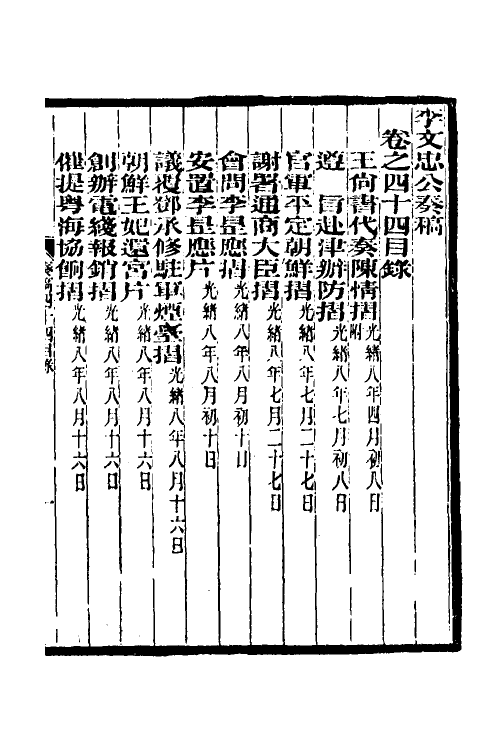 李文忠公奏稿
卷之四十四目錄
王尚書代奏陳情摺附 光緒八年四月初八日
遵 旨赴津辦防摺 光緒八年七月初八日
官軍平定朝鮮摺 光緒八年七月二十七日
謝署通商大臣摺 光緒八年七月二十七日
會問李昰應摺 光緒八年八月初十日
安置李昰應片 光緒八年八月初十日
議覆鄧承修駐軍煙臺摺 光緒八年八月十六日
朝鮮王妃還宮片 光緒八年八月十六日
創辦電綫報銷摺 光緒八年八月十六日
催提粵海協餉摺 光緒八年八月十六日
奏稿四十四目錄
一